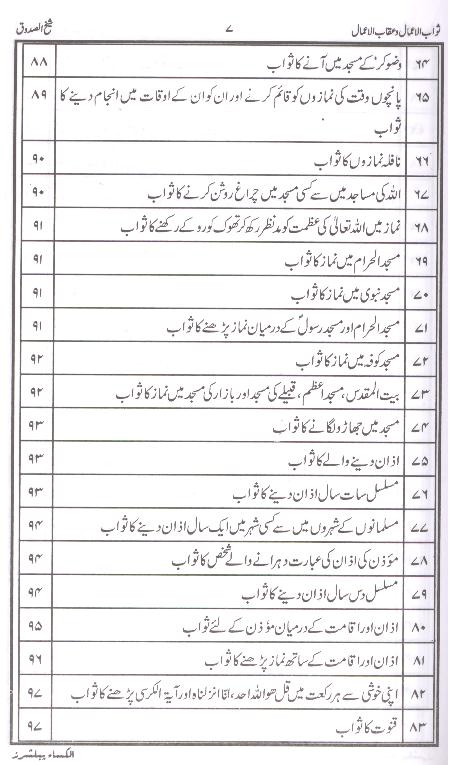 ثواب الاعمال و عقاب الاعمال ۷ شیخ الصدوقؒ
۶۴ وضو کر کے مسجد میں آنے کا ثواب ۸۸
۶۵ پانچوں وقت کی نمازوں کو قائم کرنے اور ان کو ان کے اوقات میں انجام دینے کا ۸۹
ثواب
۶۶ نافلہ نمازوں کا ثواب ۹۰
۶۷ اللہ کی مساجد میں سے کسی مسجد میں چراغ روشن کرنے کا ثواب ۹۰
۶۸ نماز میں اللہ تعالیٰ کی عظمت کو مدنظر رکھ کر تھوک کو روکے رکھنے کا ثواب ۹۱
۶۹ مسجد الحرام میں نماز کا ثواب ۹۱
۷۰ مسجد نبوی میں نماز کا ثواب ۹۱
۷۱ مسجد الحرام اور مسجد رسولؐ کے درمیان نماز پڑھنے کا ثواب ۹۱
۷۲ مسجد کوفہ میں نماز کا ثواب ۹۲
۷۳ بیت المقدس، مسجد اعظم، قبیلے کی مسجد اور بازار کی مسجد میں نماز کا ثواب ۹۲
۷۴ مسجد میں جھاڑو لگانے کا ثواب ۹۳
۷۵ اذان دینے والے کا ثواب ۹۳
۷۶ مسلسل سات سال اذان دینے کا ثواب ۹۳
۷۷ مسلمانوں کے شہروں میں سے کسی شہر میں ایک سال اذان دینے کا ثواب ۹۴
۷۸ مؤذن کی اذان کی عبارت دہرانے والے شخص کا ثواب ۹۴
۷۹ مسلسل دس سال اذان دینے کا ثواب ۹۴
۸۰ اذان اور اقامت کے درمیان مؤذن کے لئے ثواب ۹۵
۸۱ اذان اور اقامت کے ساتھ نماز پڑھنے کا ثواب ۹۶
۸۲ اپنی خوشی سے ہر رکعت میں قل ھو اللہ احد، انا انزلناہ اور آیۃ الکرسی پڑھنے کا ثواب ۹۷
۸۳ قنوت کا ثواب ۹۷
الکساء پبلشرز